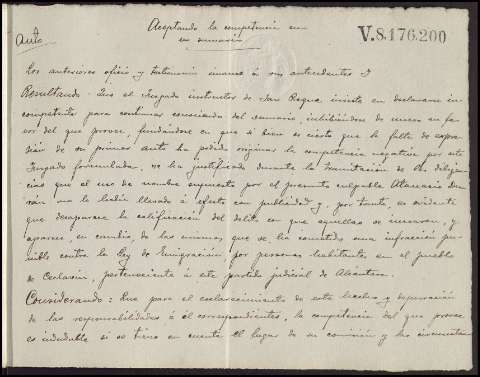 Aceptando la competencia en
un sumario
V.8.176.200
Auto
Los anteriores oficio y testimonio únanse á sus antecedentes y
Resultando: Que el Juzgado instructor de San Roque insiste en declararse in-
competente para continuar conociendo del sumario, inhibiéndose de nuevo en fa-
vor del que provee, fundándose en que si bien es cierto que la falta de expre-
sión de su primer auto ha podido originar la competencia negativa por este
Juzgado formulada, se ha justificado durante la tramitación de las diligen-
cias que el uso de nombre supuesto por el presunto culpable Atanasio
no lo había llevado á efecto con publicidad y, por tanto, es evidente
que desaparece la calificación del delito en que aquellas se incoaron, y
aparece, en cambio, de las mismas, que se ha cometido una infracción pu-
nible contra la Ley de Emigración, por personas habitantes en el pueblo
de Ceclavin, perteneciente á este partido judicial de Alcántara.
Considerando: Que para el esclarecimiento de estos hechos y depuración
de las responsabilidades á él correspondientes, la competencia del que provee
es indudable si se tiene en cuenta el lugar de su comisión y las circunstan